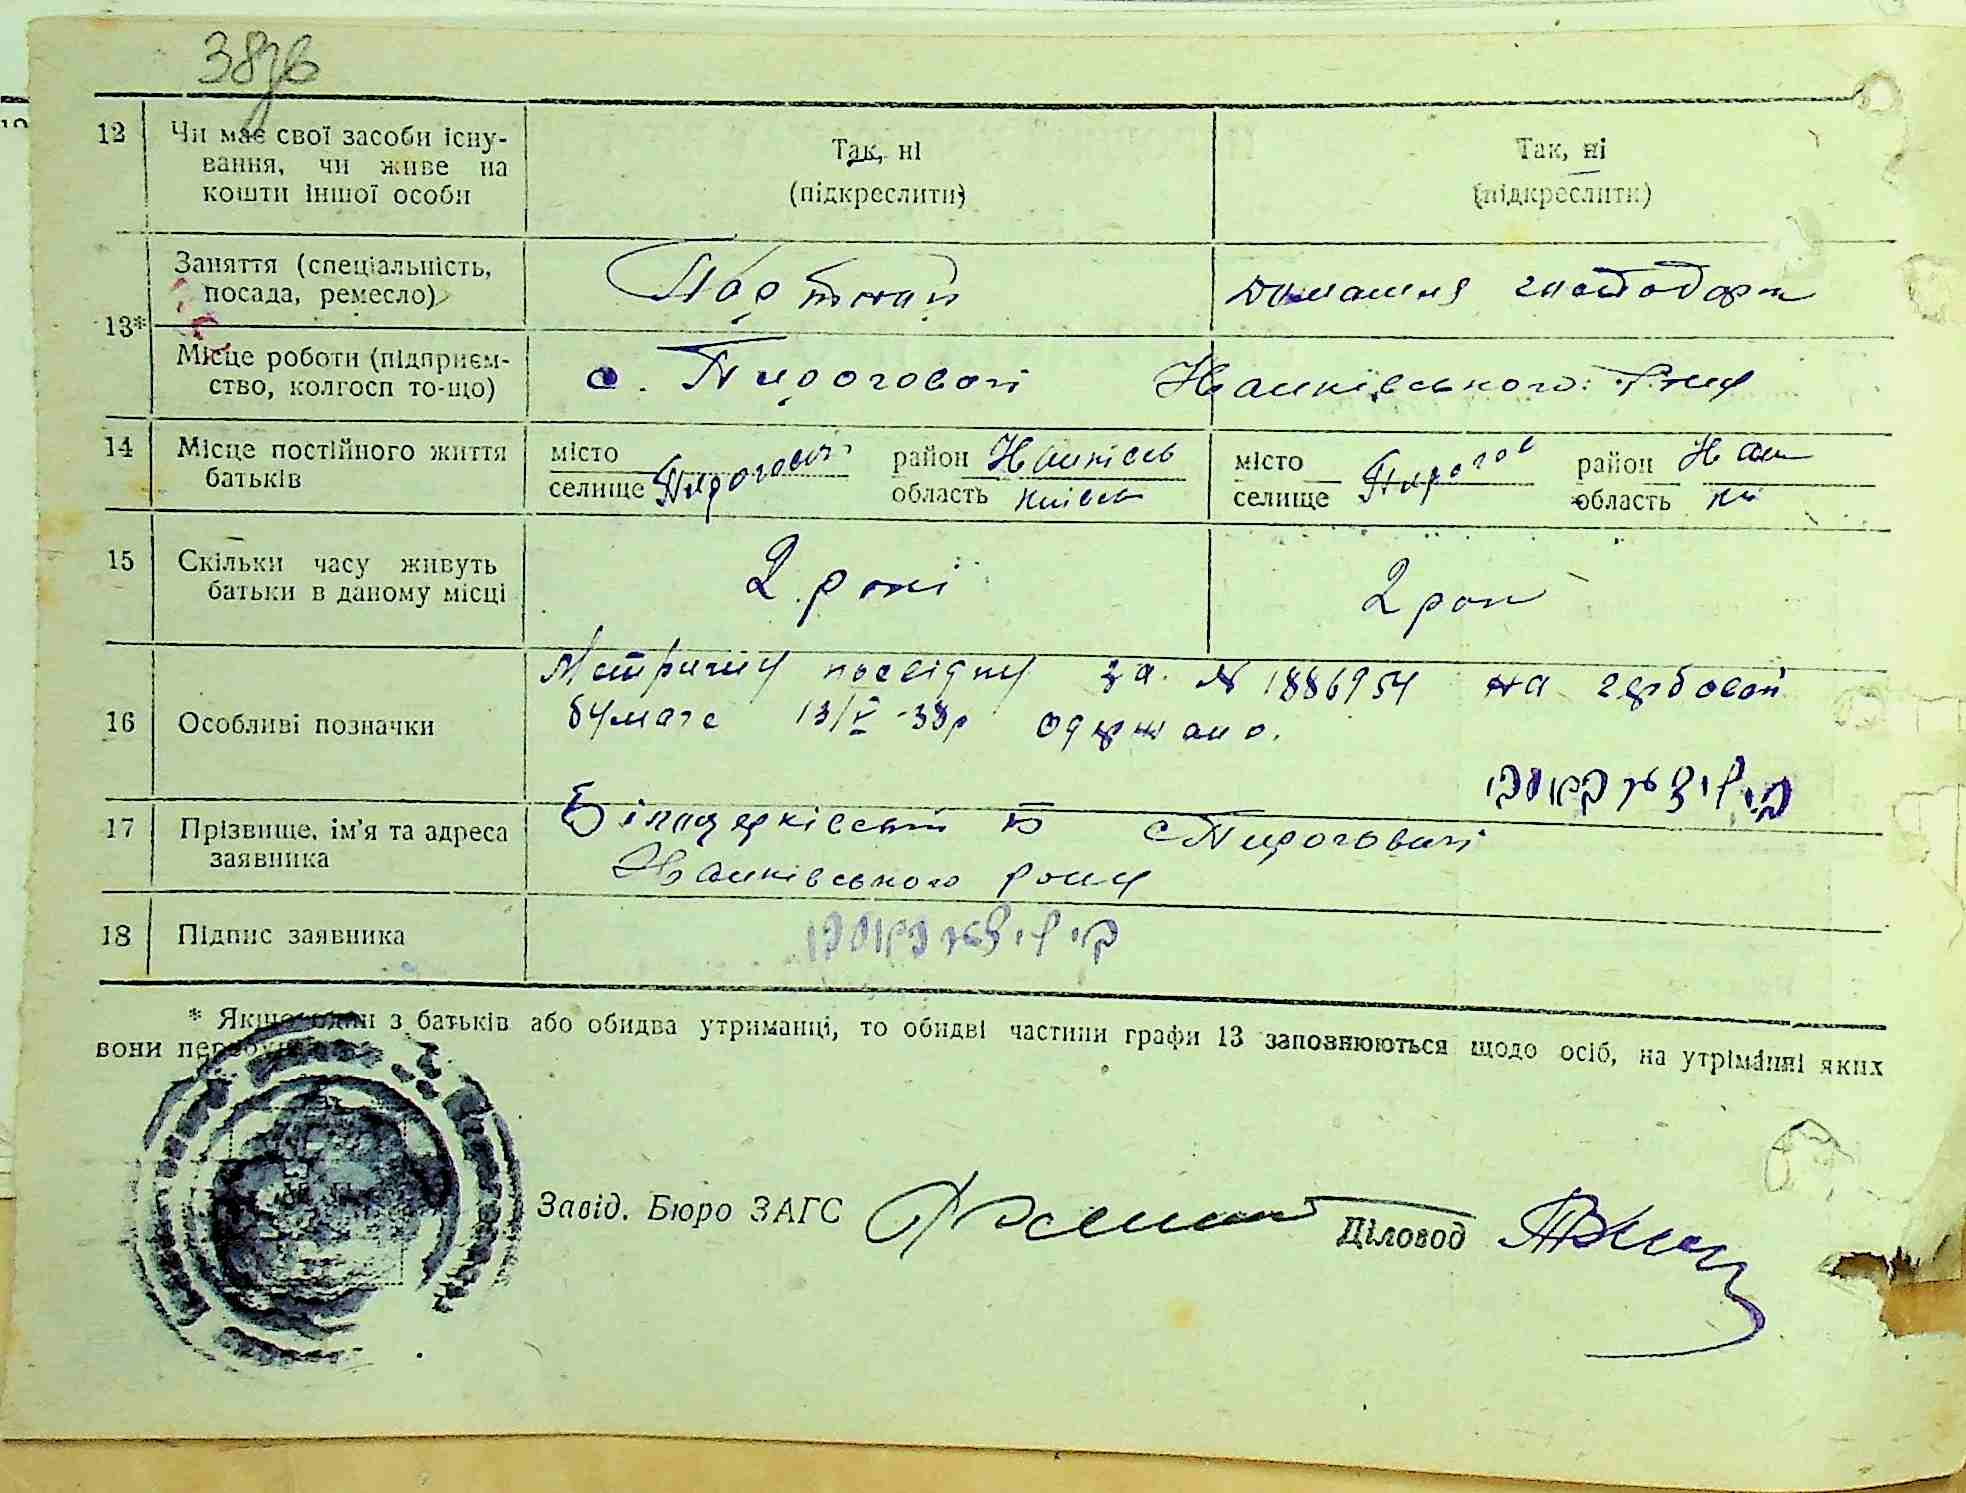 38зв
12 Чи має свої засоби існу-
вання, чи живе на
кошти іншої особи
Так, ні
(підкреслити)
Так, ні
(підкреслити)
13*
Заняття (спеціальність,
посада, ремесло)
Портной
домашня
Місце роботи (підприєм-
ство, колгосп то-що)
с. Пироговичі Іванківського р-ну
14 Місце постійного життя
батьків
місто
селище Пирогович
район Іванківсь
область київсь
місто
селище Пирогов
район Іван
область ки
15 Скільки часу живуть
батьки в даному місці
2 рокі
2 рок
16 Особливі позначки
Метричну посвідку за № 1886954 на гербовой
бумаге 13/V-38р одержано.
17 Прізвище, ім'я та адреса
заявника
Білацерківський Б с Пироговичі
Іванківського
18 Підпис заявника
* Якщо один з батьків або обидва утриманці, то обидві частини графи 13 заповнюються щодо осіб, на утріманні яких
вони
Завід. Бюро ЗАГС
Діловод